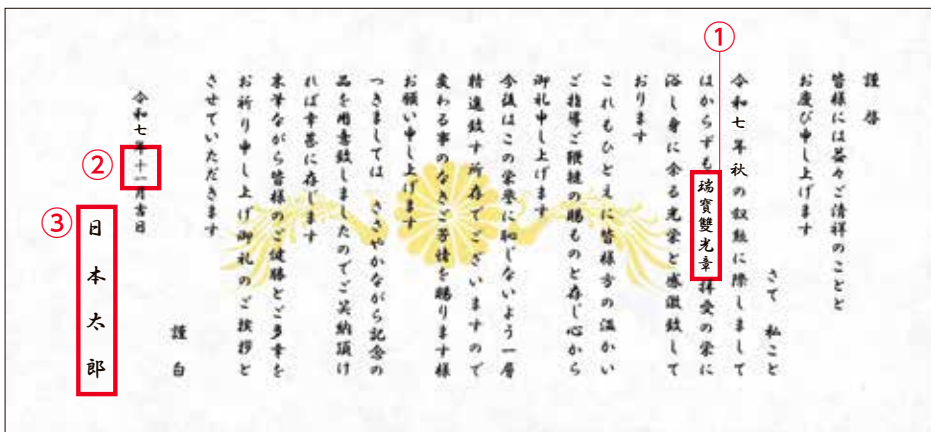 謹啓
皆様には益々ご清祥のことと
お慶び申し上げます
さて 私こと
令和七年秋の叙勲に際しまして
はからずも瑞寳雙光章拝受の栄に
浴し身に余る光栄と感激致して
おります
これもひとえに皆様方の温かい
ご指導ご鞭撻の賜ものと存じ心から
御礼申し上げます
今後はこの栄誉に恥じないよう一層
精進致す所存でございますので
変わる事のなきご芳情を賜ります様
お願い申し上げます
つきましては ささやかながら記念の
品を用意致しましたのでご笑納頂け
れば幸甚に存します
末筆ながら皆様のご健勝とご多幸を
お祈り申し上げ御礼のご挨拶と
させていただきます
謹白
令和七年十一月吉日
日本太郎
①
②
③